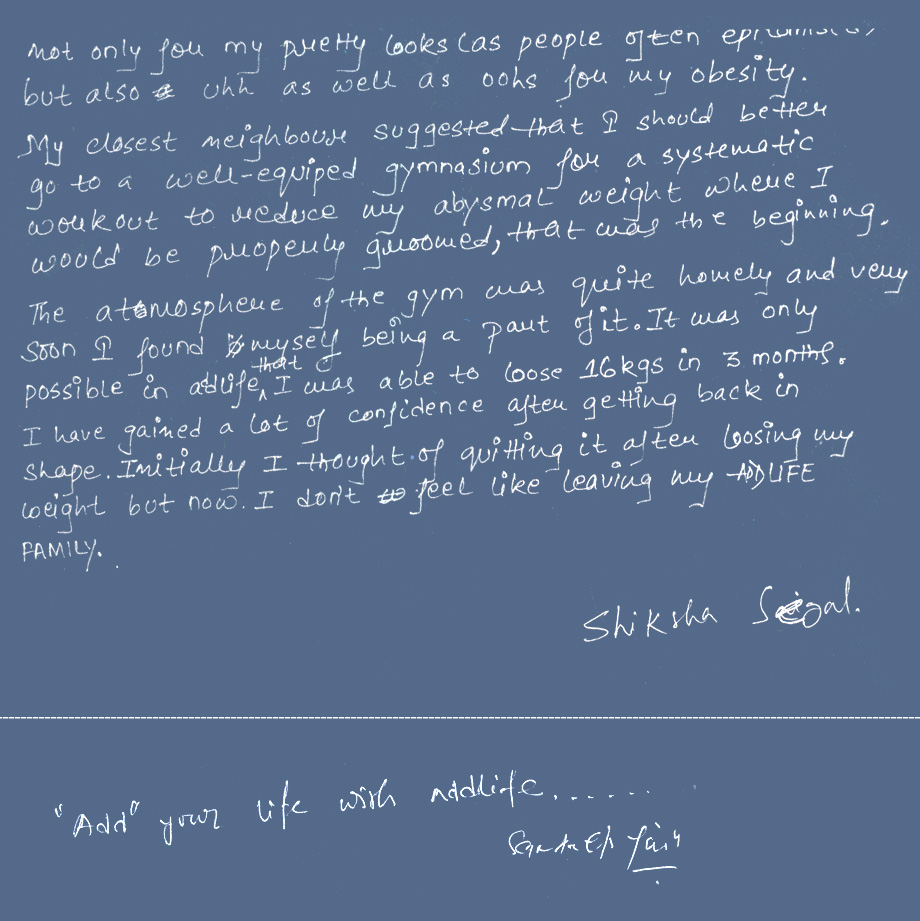 not only for my pretty looks (as people often
but also uhh as well as oohs for my obesity.
My closest neighbour suggested that I should better
go to a well-equiped gymnasium for a systematic
workout to reduce my abysmal weight where I
would be properly groomed, that was the beginning.
The atomosphere of the gym was quite homely and very
soon I found myself being a part of it. It was only
possible in adlife, that I was able to loose 16kgs in 3 months.
I have gained a lot of confidence after getting back in
shape. Initially I thought of quitting it after loosing my
weight but now. I don't feel like leaving my ADDLIFE
FAMILY.
Shiksha
"Add" your life with addlife......